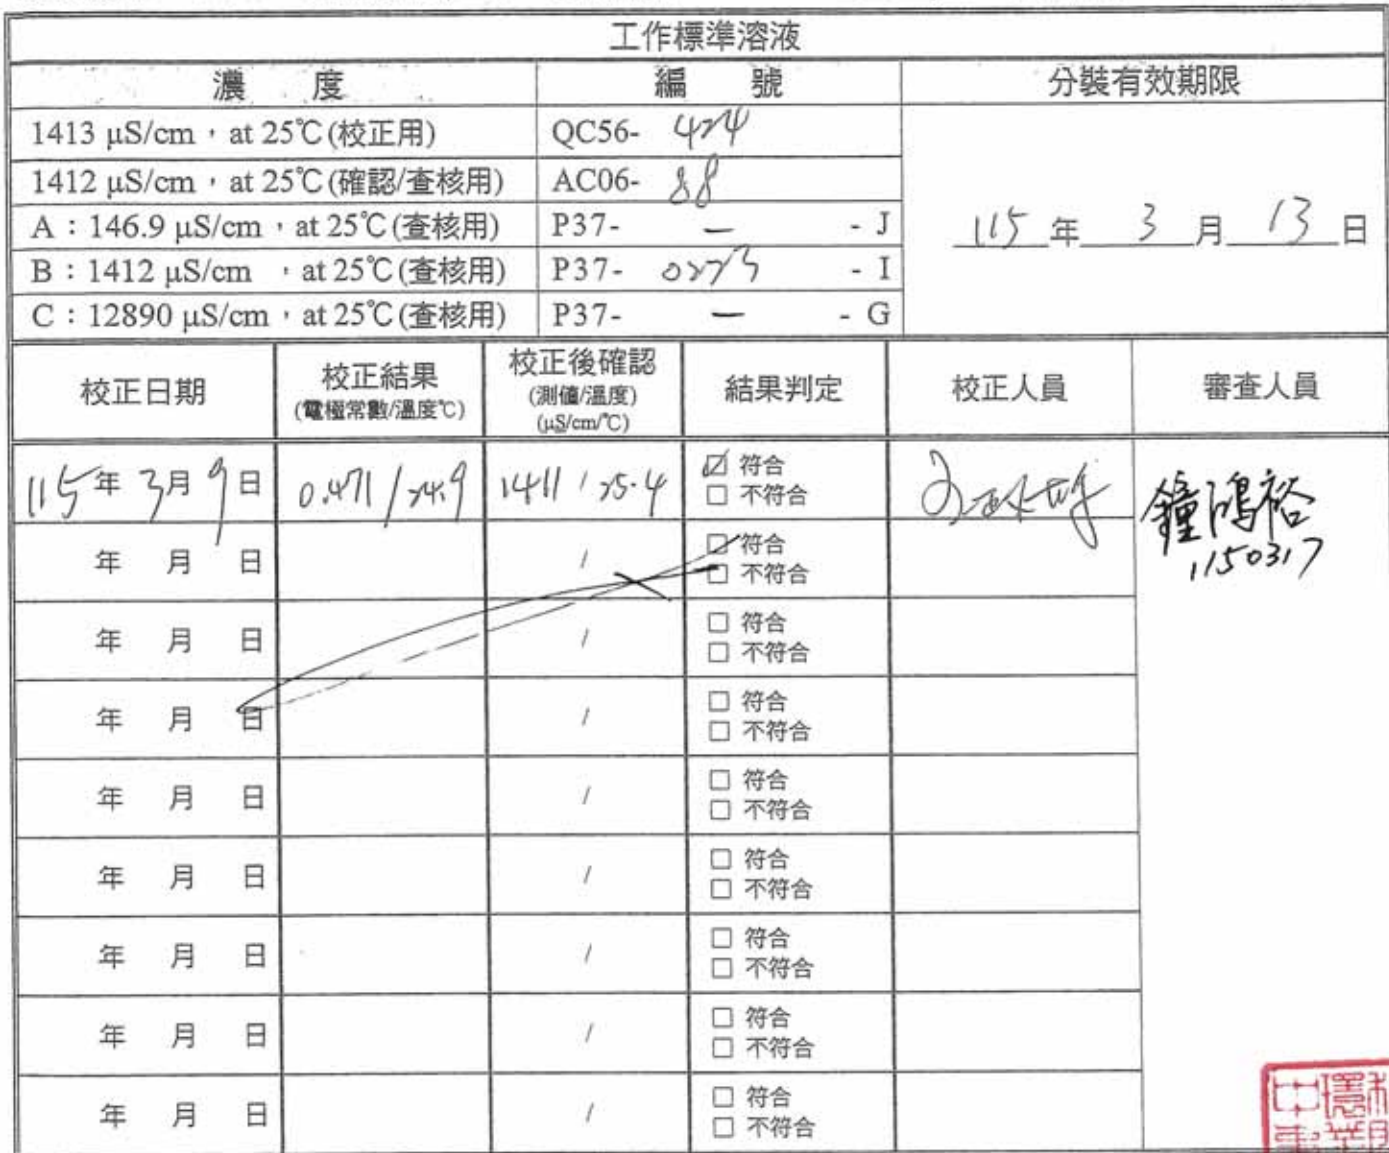 工作標準溶液
濃 度 編 號 分裝有效期限
1413 μS/cm,at 25℃(校正用) QC56- 424
1412 μS/cm,at 25℃(確認/查核用) AC06- 88
A:146.9 μS/cm,at 25℃(查核用) P37- — - J
115 年 3 月 13 日
B:1412 μS/cm ,at 25℃(查核用) P37- 0273 - I
C:12890 μS/cm,at 25℃(查核用) P37- — - G
校正日期 校正結果 (電極常數/溫度℃) 校正後確認 (測値/溫度) (μS/cm/℃) 結果判定 校正人員 審查人員
115年 3月 9日 0.471 / 24.9 1411 / 25.4 ☑ 符合
□ 不符合
鐘鴻裕
1150317
年 月 日 / □ 符合
□ 不符合
年 月 日 / □ 符合
□ 不符合
年 月 日 / □ 符合
□ 不符合
年 月 日 / □ 符合
□ 不符合
年 月 日 / □ 符合
□ 不符合
年 月 日 / □ 符合
□ 不符合
年 月 日 / □ 符合
□ 不符合
年 月 日 / □ 符合
□ 不符合